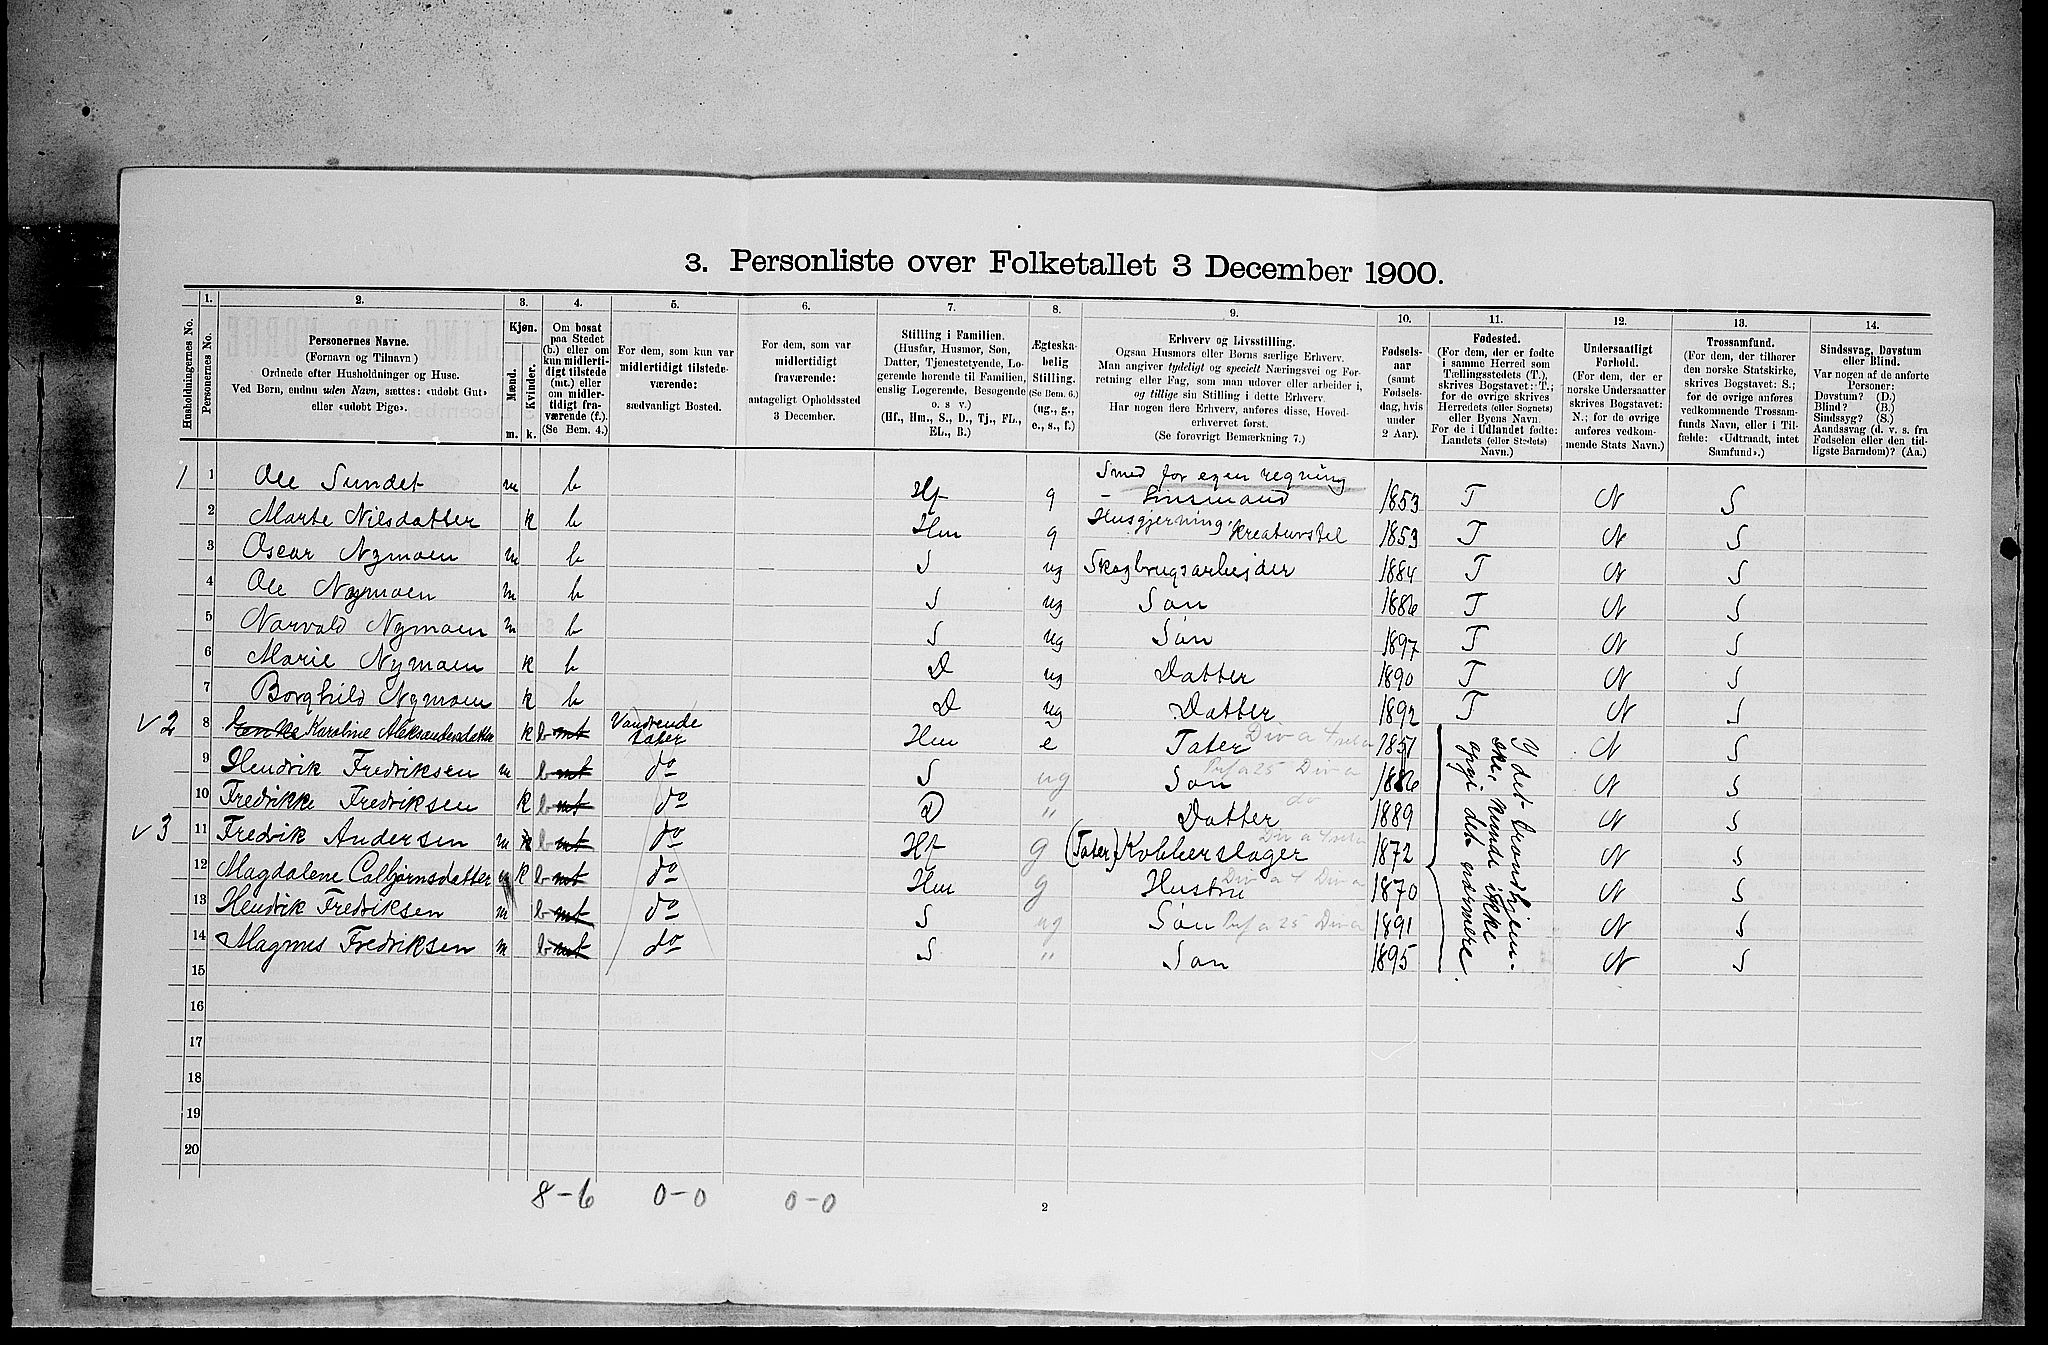 3. Personliste over Folketallet 3 December 1900.
Husholdningernes No.
1.
Personernes No.
2.
Personernes Navne.
(Fornavn og Tilnavn)
Ordnede efter Husholdninger og Huse.
Ved Børn, endnu uden Navn, sættes: «udøbt Gut»
eller «udøbt Pige».
3.
Kjøn.
Mænd.
m.
Kvinder.
k.
4.
Om bosat
paa Stedet
(b.) eller om
kun midlerti-
digt tilstede
(mt.) eller
om midler-
tidigt fra-
værende (f.).
(Se Bem. 4.)
5.
For dem, som kun var
midlertidigt tilstede-
værende:
sædvanligt Bosted.
6.
For dem, som var
midlertidigt
fraværende:
antageligt Opholdssted
3 December.
7.
Stilling i Familien.
(Husfar, Husmor, Søn,
Datter, Tjenestetyende, Lo-
gerende hørende til Familien,
enslig Logerende, Besøgende
o. s v.)
(Hf., Hm., S., D., Tj., FL.,
EL., B.)
8.
Ægteska-
belig
Stilling.
(Se Bem. 6.)
(ug., g.,
e., s., f.)
9.
Erhverv og Livsstilling.
Ogsaa Husmors eller Børns særlige Erhverv.
Man angiver tydeligt og specielt Næringsvei og For-
retning eller Fag, som man udøver eller arbeider i,
og tillige sin Stilling i dette Erhverv.
Har nogen flere Erhverv, anføres disse, Hoved-
erhvervet først.
(Se forøvrigt Bemærkning 7.)
10.
Fødsels-
aar
(samt
Fødsels-
dag, hvis
under
2 Aar).
11.
Fødested.
(For dem, der er fødte
i samme Herred som
Tællingsstedets (T.),
skrives Bogstavet: T.;
for de øvrige skrives
Herredets (eller Sognets)
eller Byens Navn.
For de i Udlandet fødte:
Landets (eller Stedets)
Navn.)
12.
Undersaatligt
Forhold.
(For dem, der er
norske Undersaatter
skrives Bogstavet:
N.; for de øvrige
anføres vedkom-
mende Stats Navn.)
13.
Trossamfund.
(For dem, der tilhører
den norske Statskirke,
skrives Bogstavet: S.;
for de øvrige anføres
vedkommende Trossam-
funds Navn, eller i Til-
fælde: «Udtraadt, intet
Samfund».)
14.
Sindssvag, Døvstum
eller Blind.
Var nogen af de anførte
Personer:
Døvstum? (D.)
Blind? (B.)
Sindssyg? (S.)
Aandssvag (d. v. s. fra
Fødselen eller den tid-
ligste Barndom)? (Aa.)
1 1 Ole Sundet m b Hf g Smed for egen regning - Husmand 1853 T N S
2 Marte Nilsdatter k b Hm g Husgjerning, kreaturstel 1853 T N S
3 Oscar Nymoen m b S ug Skogbrugsarbejder 1884 T N S
4 Ole Nymoen m b S ug Søn 1886 T N S
5 Norvald Nymoen m b S ug Søn 1897 T N S
6 Marie Nymoen k b D ug Datter 1890 T N S
7 Borghild Nymoen k b D ug Datter 1892 T N S
v 2 8 Enke Karoline Aleksandersdatter k b mt Vandrende tater Hm e Tater 1851 N S
9 Hendrik Fredriksen m b mt do S ug Søn 1886 N S
10 Fredrikke Fredriksen k b mt do D " Datter 1889 N S
v 3 11 Fredrik Andersen m k b mt do Hf g (Tater) Kobberslager 1872 N S
12 Magdalene Colbjørnsdatter m k b mt do Hm g Hustru 1870 N S
13 Hendrik Fredriksen m b mt do S ug Søn 1891 N S
14 Magnus Fredriksen m b mt do S " Søn 1895 N S
I det trondhjem-
ske, kunde ikke
opgi det nærmere.
15
16
17
18
19
20
8-6 0-0 0-0
2